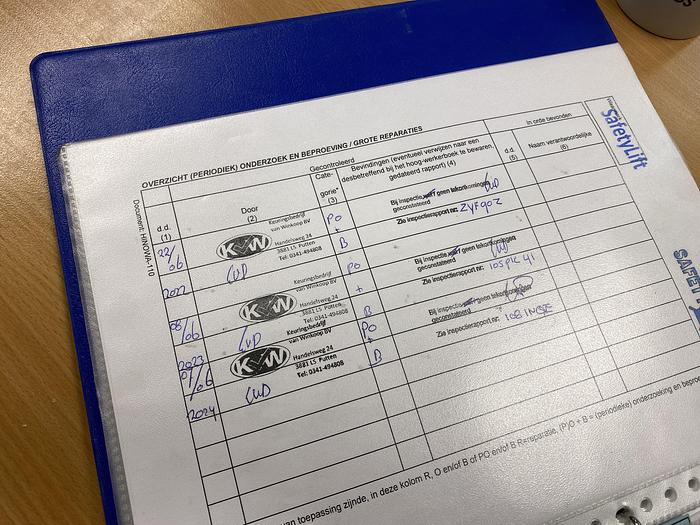 OVERZICHT (PERIODIEK) ONDERZOEK EN BEPROEVING / GROTE REPARATIES
Document: HINOVA-110
SafetyLift
d.d.
(1)
Door
(2)
Gecontroleerd
Cate-
gorie*
(3)
Bevindingen (eventueel verwijzen naar een
desbetreffend bij het hoog-werkerboek te bewaren,
gedateerd rapport) (4)
d.d.
(5)
In orde bevonden
Naam verantwoordelijke
(6)
22/
06
2022
KVW
Keuringsbedrijf
van Winkoop BV
Handelsweg 24
3881 LS Putten
Tel: 0341-494808
PO
+
B
Bij inspectie geen tekortkomingen
geconstateerd
Zie inspectierapport nr:
08/
06
2023
KVW
Keuringsbedrijf
van Winkoop BV
Handelsweg 24
3881 LS Putten
Tel: 0341-494808
PO
+
B
Bij inspectie geen tekortkomingen
geconstateerd
Zie inspectierapport nr:
/06
2024
KVW
Keuringsbedrijf
van Winkoop BV
Handelsweg 24
3881 LS Putten
Tel: 0341-494808
PO
+
B
Bij inspectie geen
geconstateerd
Zie inspectierapport nr:
van toepassing zijnde, in deze kolom R, O en/of B of PO en/of B R=reparatie, (P)O + B = (periodieke) onderzoeking en
SAFET